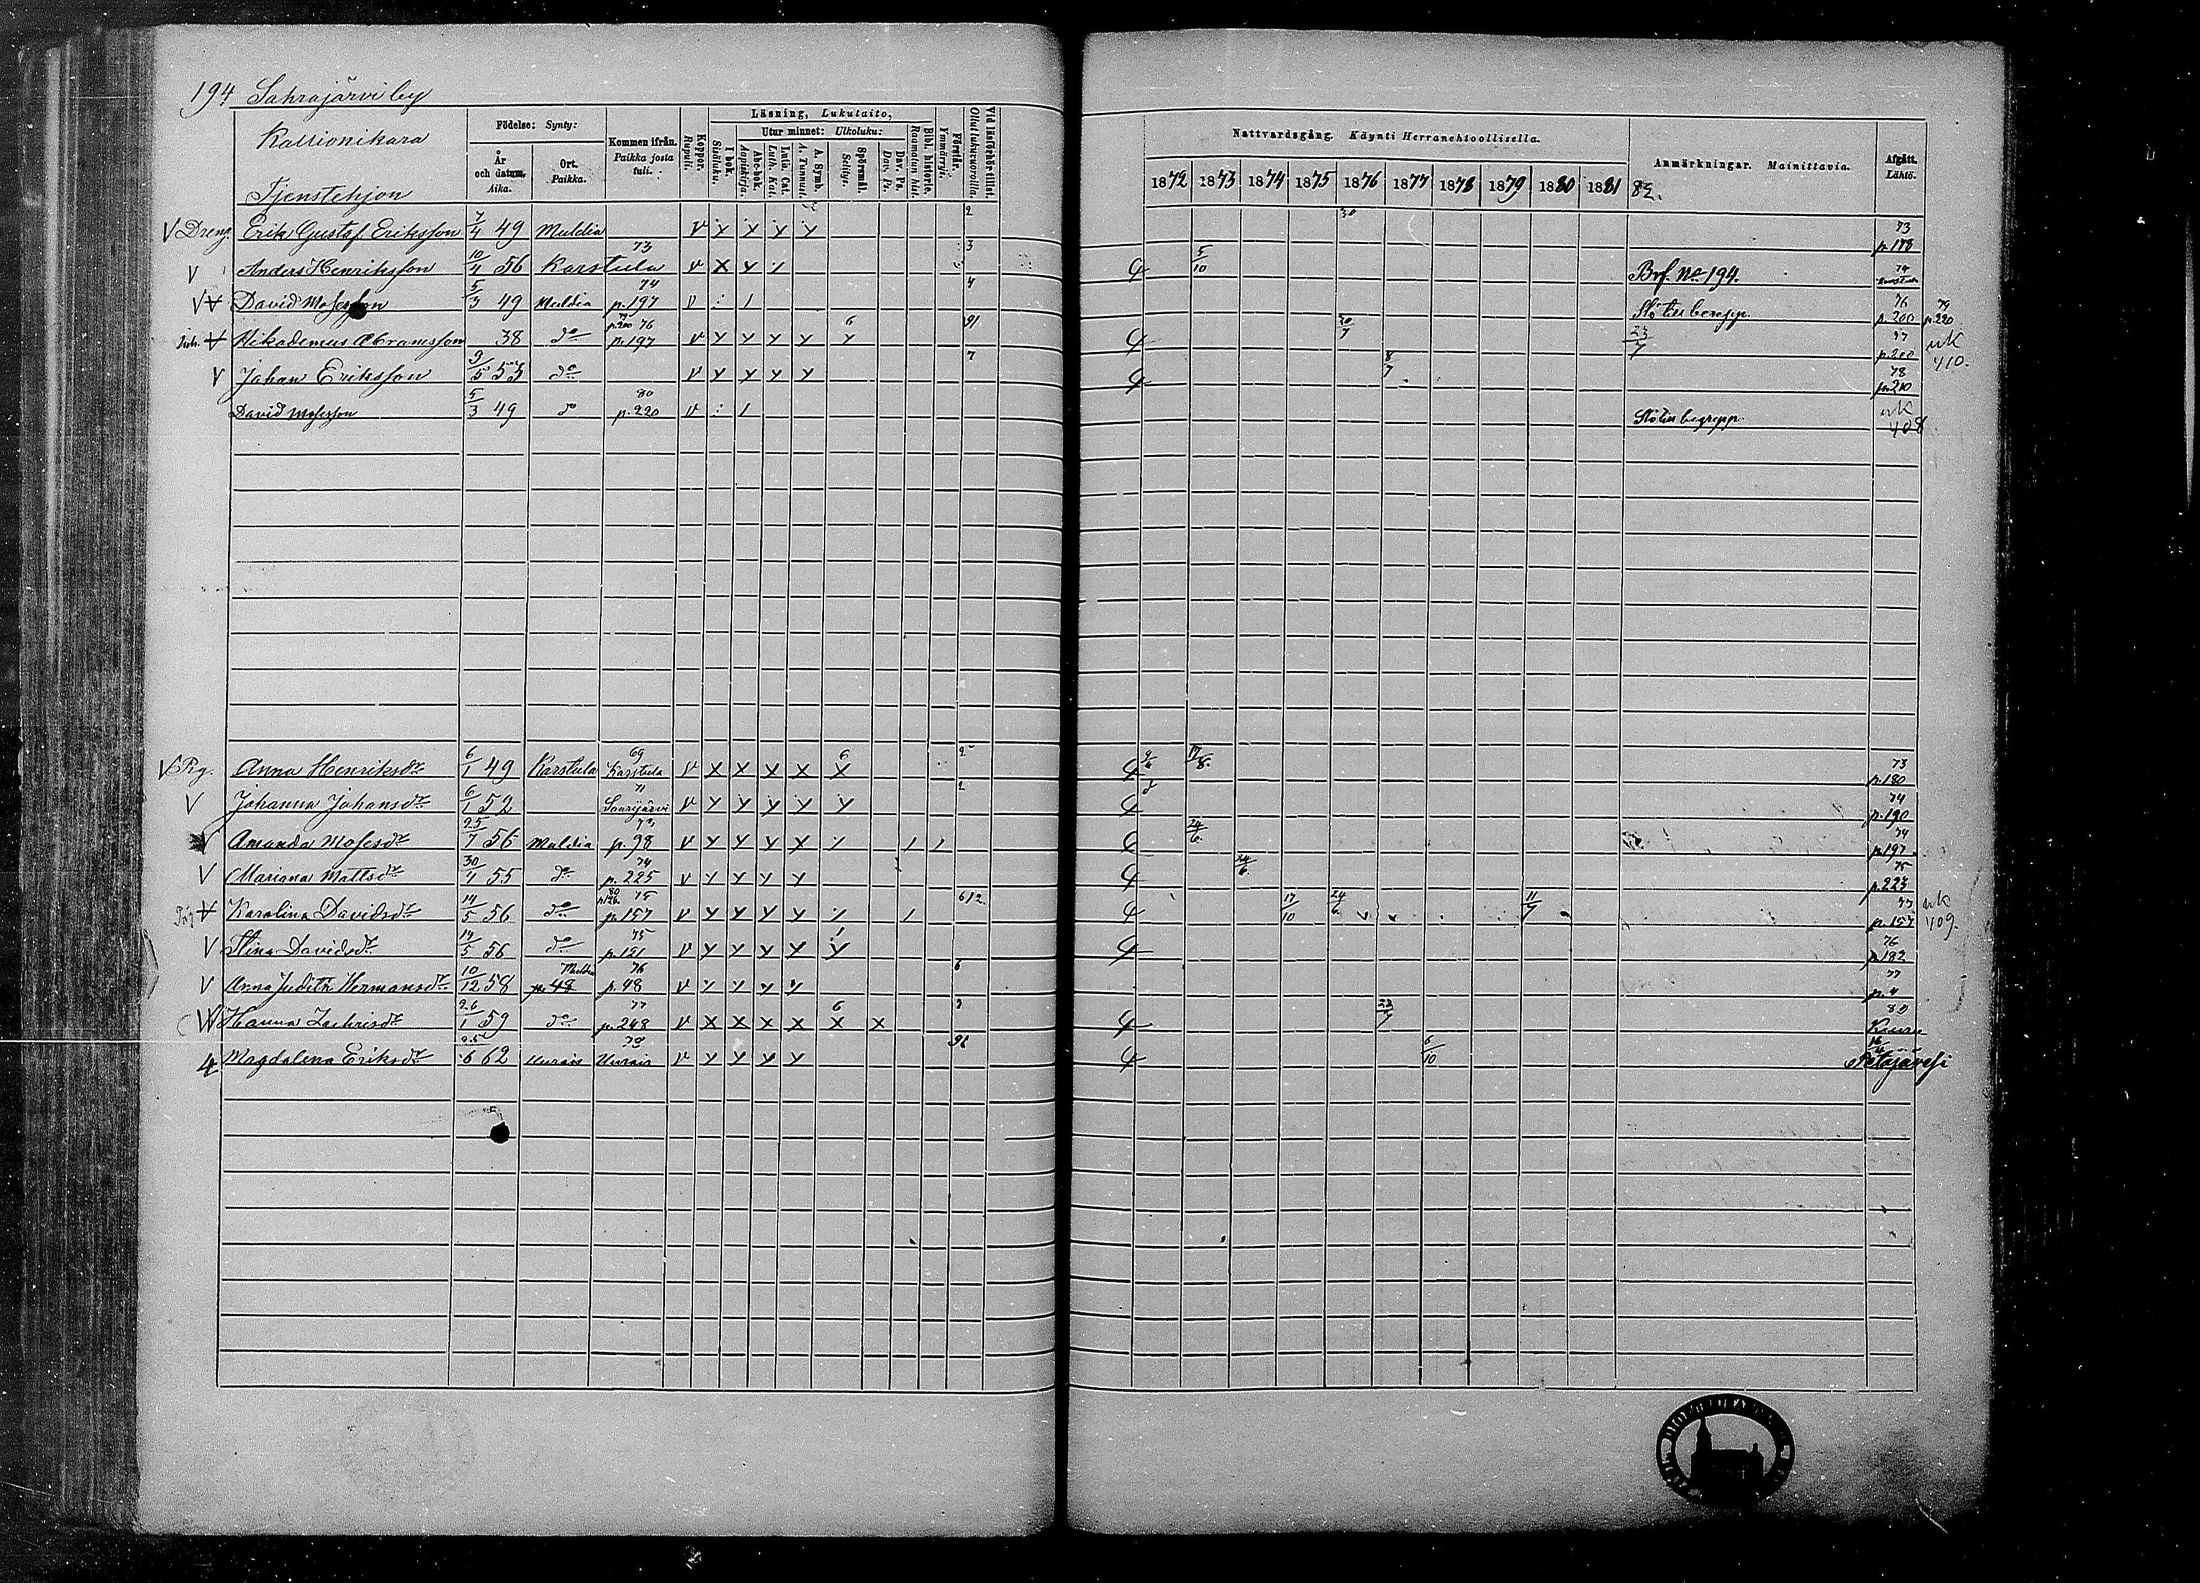 194 Sahrajärvi by
Kallionikara
Tjenstehjon
Födelse: Synty:
År och datum. Aika.
Ort. Paikka.
Kommen ifrån. Paikka josta tuli.
Koppor. Rupuli.
Läsning, Lukutaito,
I bok. Sisäluku.
Utur minnet: Ulkoluku:
Abc-bok. Aapiskirja.
Luth. Cat. Luth. Kat.
A. Symb. A. Tunnust.
Spörsmål. Selitys.
Dav. Ps. Dav. Ps.
Bibl. historie. Raamatun hist.
Förstår. Ymmärrys.
Vid läsförhör tillst. Ollut lukuvuoroilla
Nattvardsgång. Käynti Herranehtoollisella.
1872 1873 1874 1875 1876 1877 1878 1879 1880 1881
Anmärkningar. Mainittavia.
82.
Afgått. Lähtö.
V Dreng. Erik Gustaf Eriksson 7/4 49 Muldia V 2 30 73 p. 178
V Anders Henriksson 10/4 56 73 Karstula V X 3 5/10 Brf. No 194. 74
V David Mosesson 5/3 49 Muldia 74 p. 197 V 4 Slö till begrepp. 76 p. 200 79 p. 220
Nikodemus Abramsson 38 do 79 p. 200 76 p. 197 V 6 91 30/7 23/7 77 p. 200 uk 410.
V Johan Eriksson 9/5 53 do V 7 8/7 78 p. 210
David Mosesson 5/3 49 do 80 p. 220 V Slö till begrepp uk 408
V Pig. Anna Henriksdr 6/1 49 Karstula 69 Karstula V X X X X 6 X 2 9/6 17/8 73 p. 180
V Johanna Johansdr 6/1 52 71 Saarijärvi V 2 74 p. 190
V Amanda Mosesdr 25/7 56 Muldia 73 p. 98 V 24/6 74 p. 197
V Mariana Mattsdr 30/1 55 do 74 p. 225 V 24/6 75 p. 223
Karolina Davidsdr 14/5 56 do 80 p. 126 75 p. 157 V 612 17/10 24/6 11/7 77 p. 157 uk 409.
V Stina Davidsdr 14/5 56 do 75 p. 121 V 76 p. 182
V Anna Judith Hermansdr 10/12 58 Muldia p. 48 76 p. 98 V 6 77 p. 4
Hanna Zachrisdr 26/1 59 do 77 p. 248 V X X X X 6 X X 22/7 80 Keuru
4 Magdalena Eriksdr 25/6 62 Uurais 78 Uurais V 91 6/10 Petäjävesi